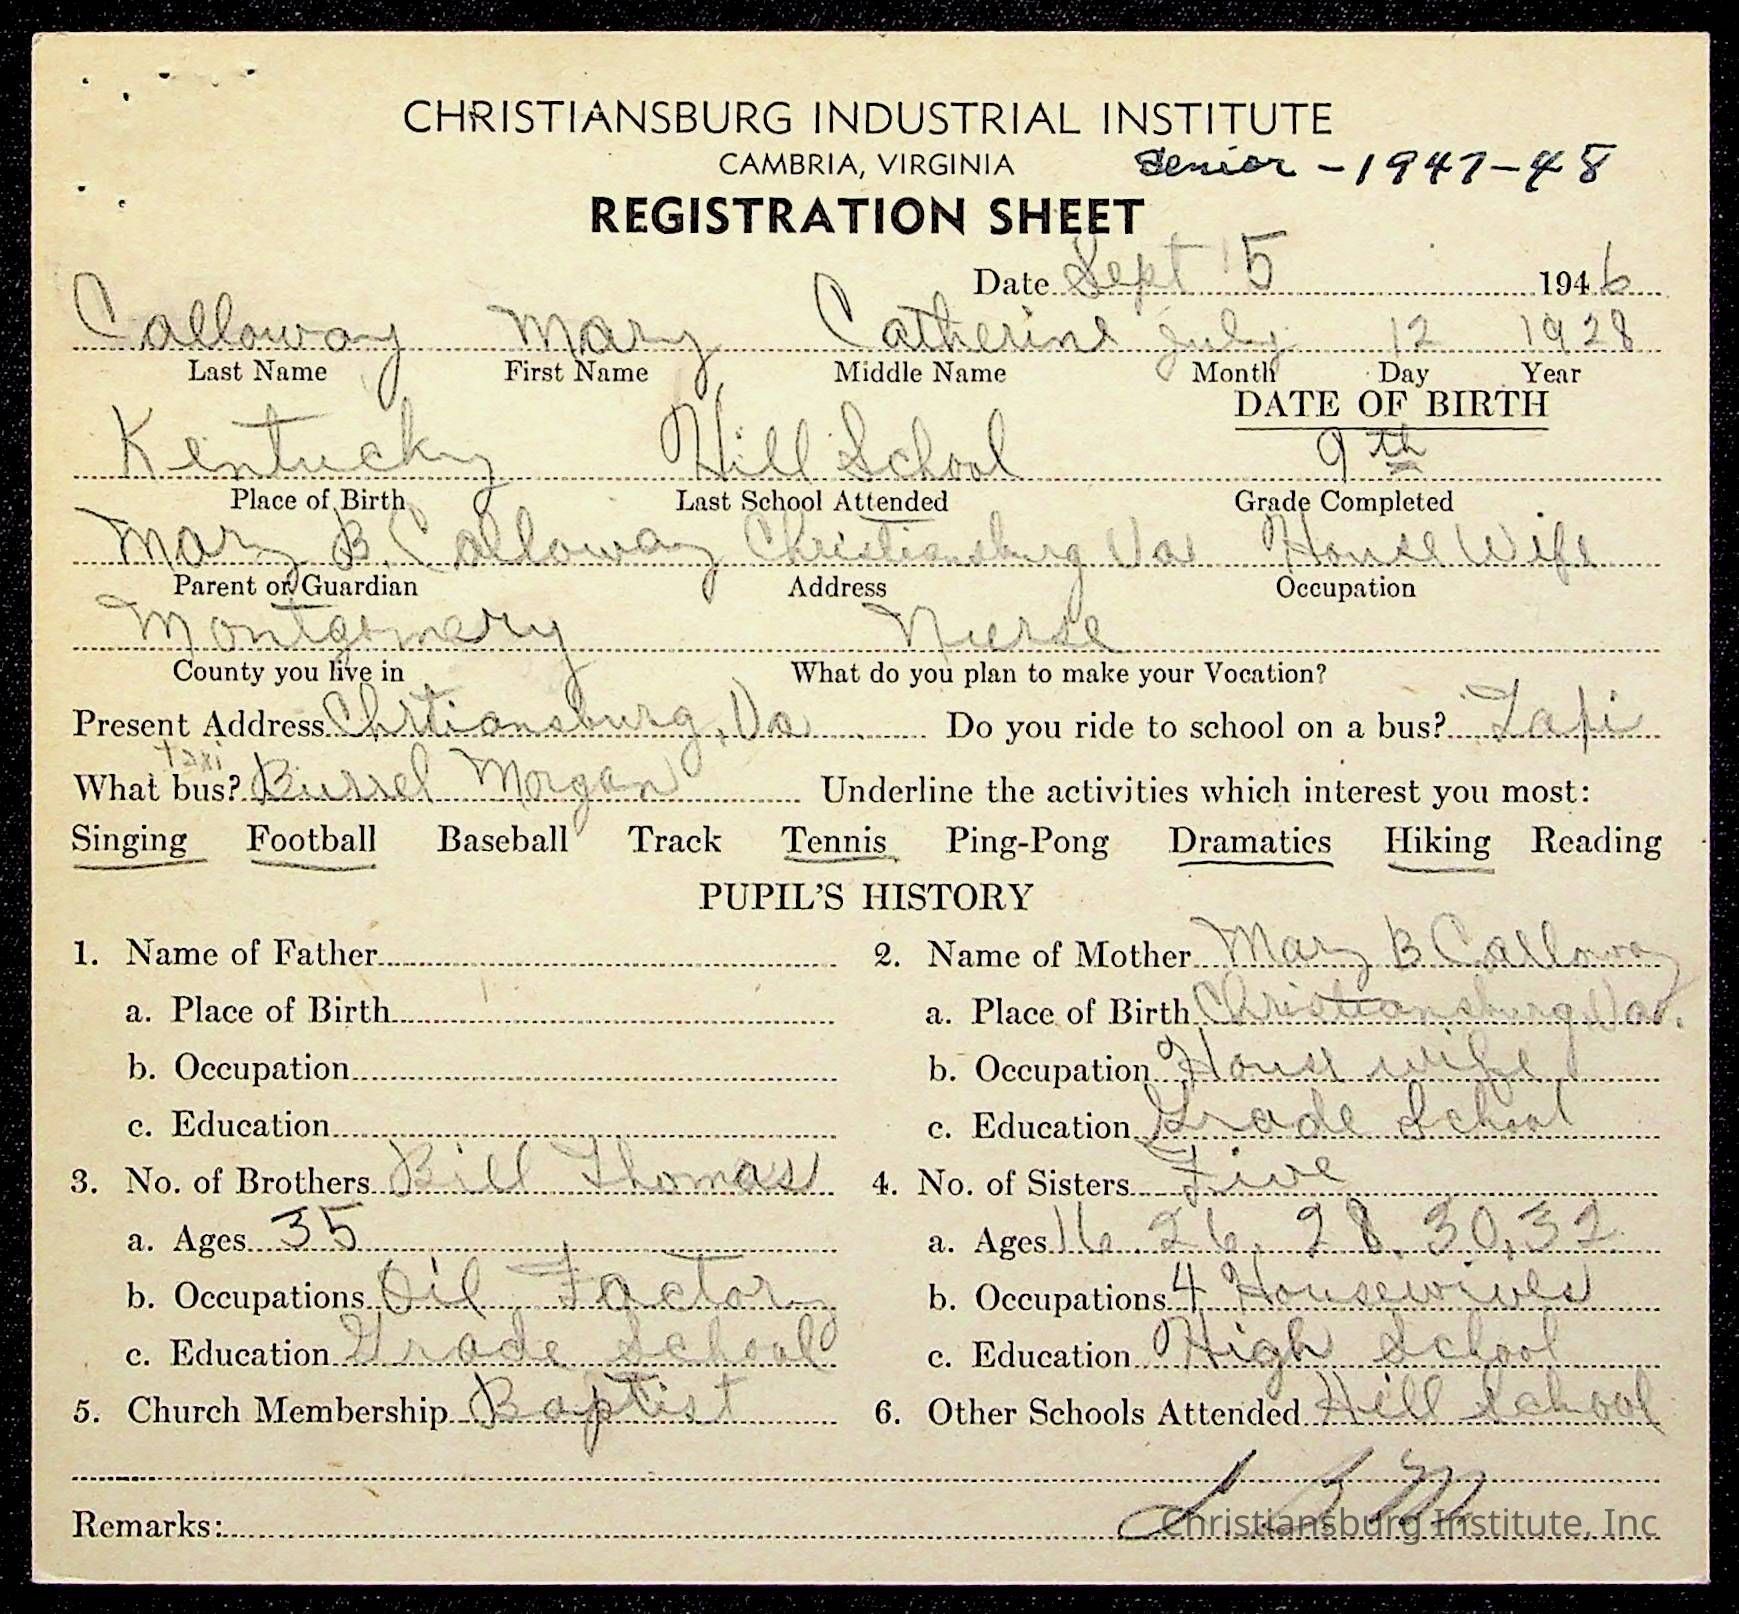 CHRISTIANSBURG INDUSTRIAL INSTITUTE
CAMBRIA, VIRGINIA Senior - 1947-48
REGISTRATION SHEET
Date Sept 5 1946
Calloway Mary Catherine July 12 1928
Last Name First Name Middle Name Month Day Year
DATE OF BIRTH
Kentucky Hill School 9th
Place of Birth Last School Attended Grade Completed
Mary B. Calloway Christiansburg Va House Wife
Parent or Guardian Address Occupation
Montgomery Nurse
County you live in What do you plan to make your Vocation?
Present Address Chrtiansburg, Va Do you ride to school on a bus? Taxi
taxi
What bus? Burrel Morgan Underline the activities which interest you most:
Singing Football Baseball Track Tennis Ping-Pong Dramatics Hiking Reading
PUPIL'S HISTORY
1. Name of Father 2. Name of Mother Mary B Calloway
a. Place of Birth a. Place of Birth Christiansburg Va.
b. Occupation b. Occupation House wife
c. Education c. Education Grade School
3. No. of Brothers Bill Thomas 4. No. of Sisters Five
a. Ages 35 a. Ages 16, 26, 28, 30, 32
b. Occupations Oil Factory b. Occupations 4 Housewives
c. Education Grade School c. Education High School
5. Church Membership Baptist 6. Other Schools Attended Hill School
Remarks:
Christiansburg Institute, Inc